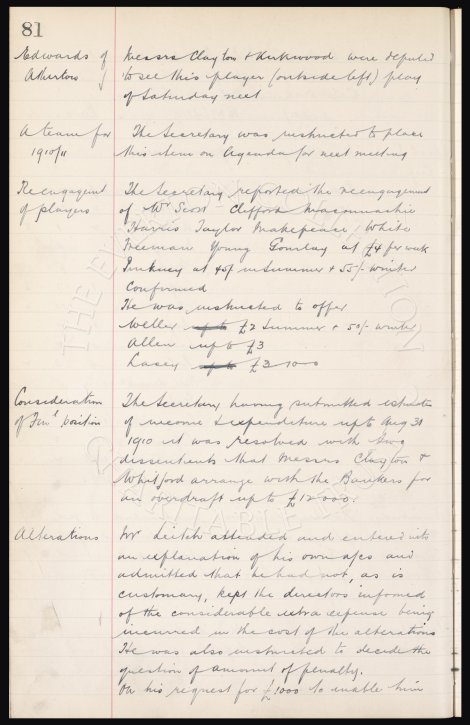 81
Edwards of
Atherton
Messrs Clayton & Kirkwood were deputed
to see this player (outside left) play
of Saturday next
A team for
1910/11
The Secretary was instructed to place
this item on Agenda for next meeting
Reengagemt
of players
The Secretary reported the reengagement
of Wm Scott Clifford Maconnachie
Harris Taylor Makepeace White
Freeman Young Gourlay at £4 per week
Pinkney at 45/ in Summer & 55/- winter
Confirmed
He was instructed to offer
Weller up to £2 Summer & 50/- winter
Allen up to £3
Lacey up to £3-10-0
Consideration
of Finl. position
The Secretary having submitted estimate
of income & expenditure up to Aug 31
1910 it was resolved with two
dissentients that Messrs Clayton &
Whitford arrange with the Bankers for
an overdraft up to £12000.
Alterations
Mr Leitch attended and entered into
an explanation of his own a/cs and
admitted that he had not, as is
customary, kept the directors informed
of the considerable extra expense being
incurred in the cost of the alterations
He was also instructed to decide the
question of amount of penalty.
On his request for £1000 to enable him
THE EVERTON COLLECTION
CHARITABLE TRUST